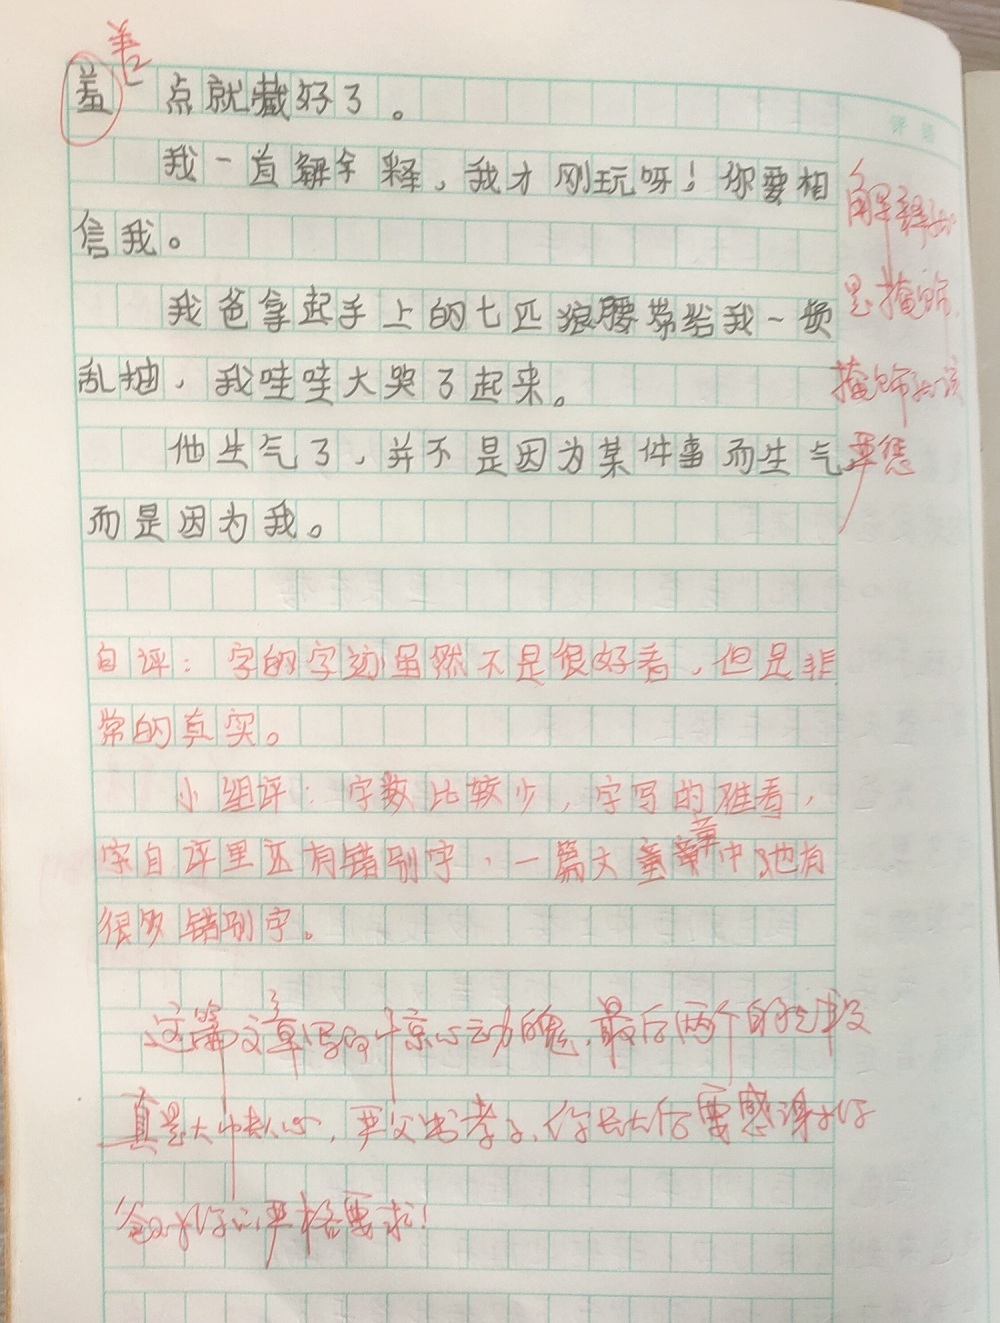 差
点就藏好了。
我一直解释,我才刚玩呀!你要相
信我。
我爸拿起手上的七匹狼腰带给我一顿
乱抽,我哇哇大哭了起来。
他生气了,并不是因为某件事而生气
而是因为我。
解释就
是掩饰,
掩饰就该
严惩
自评:字的字迹虽然不是很好看,但是非
常的真实。
小组评:字数比较少,字写的难看,
家自评里还有错别字,一篇大章章中,也有
很多错别字。
这篇文章写的惊心动魄,最后两个自然段
真是大快人心,严父出孝子,你长大后要感谢你
爸对你的严格要求!